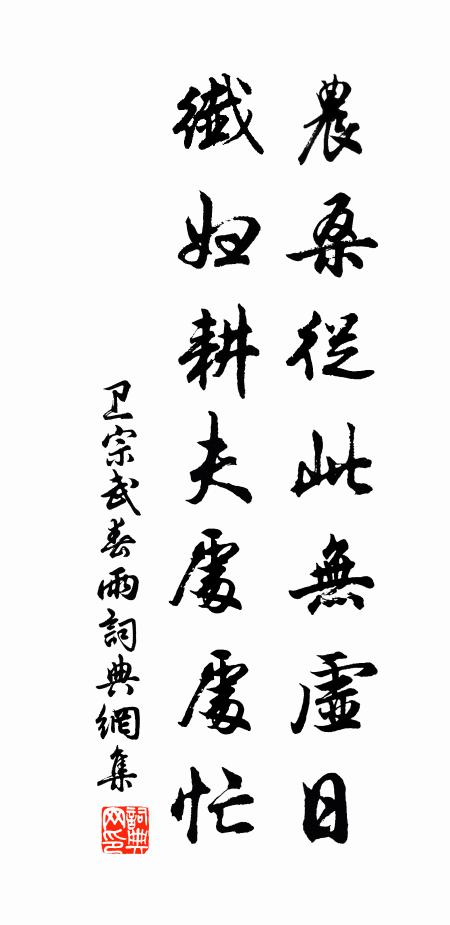 農桑從此無虛日
纖婦耕夫處處忙
卫宗武春雨詞典網集
詞典网印